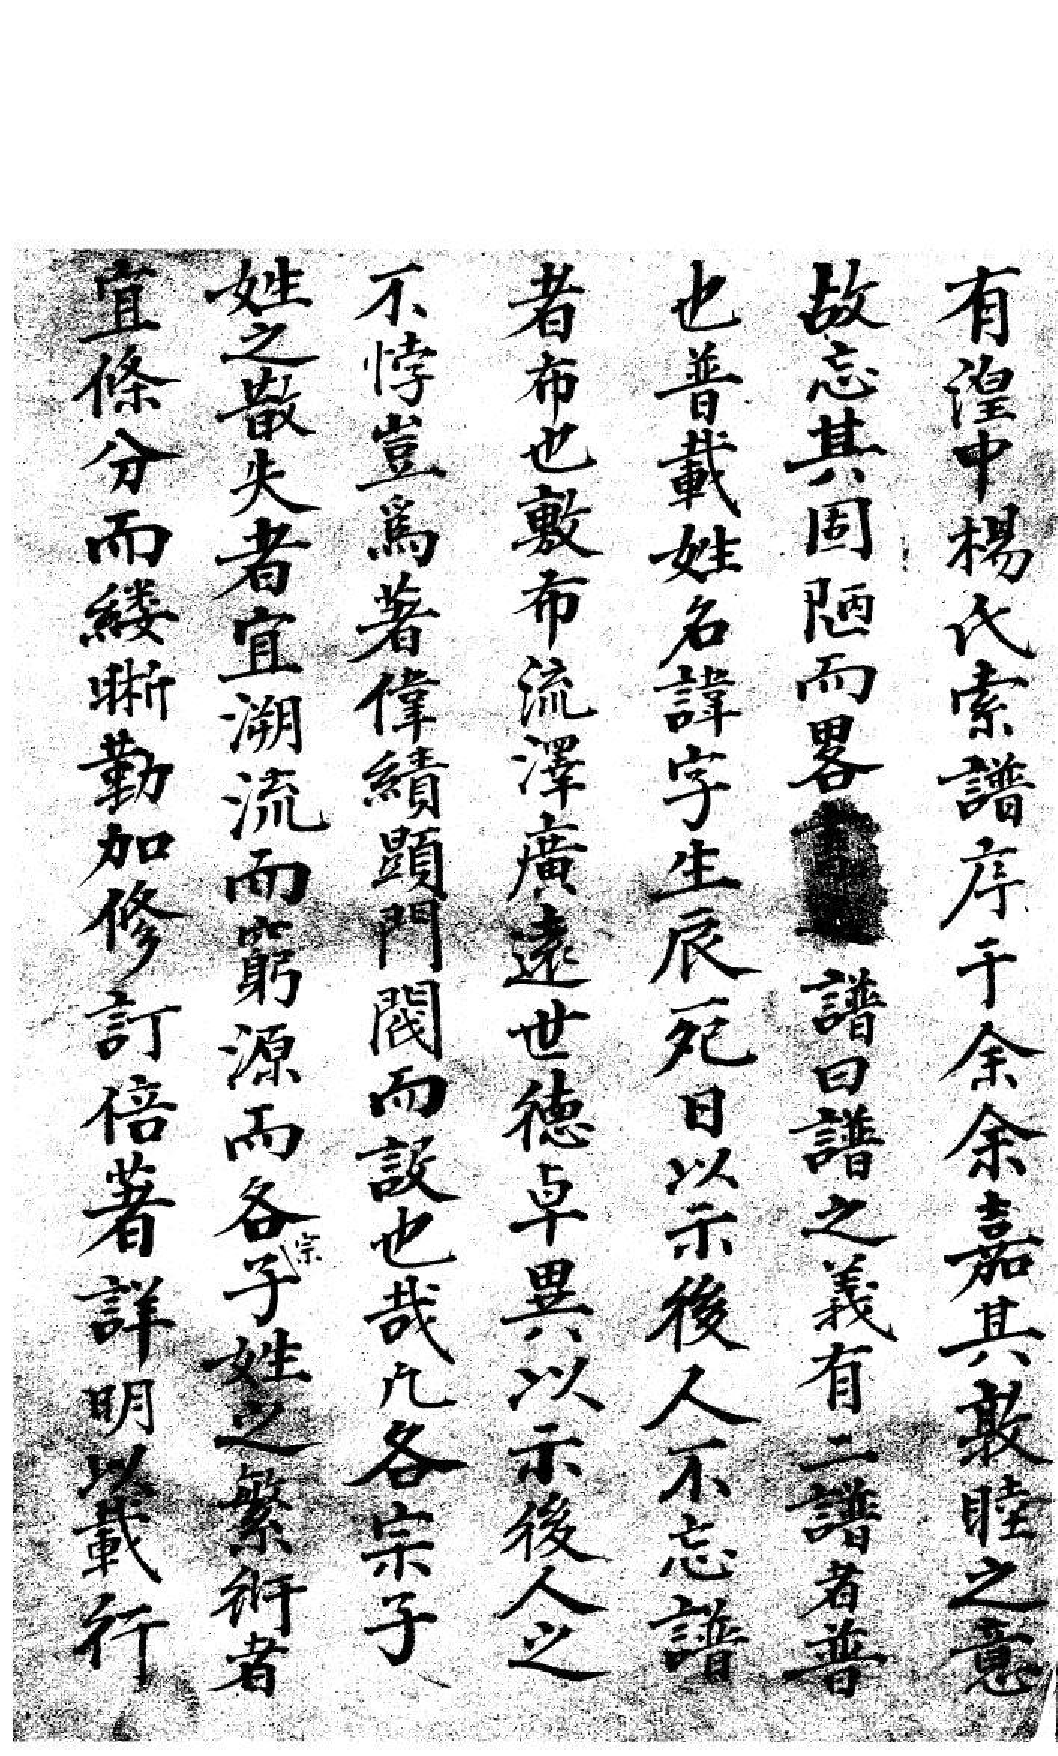 有湟中楊氏索譜序于余余嘉其敦睦之意
故忘其固陋而畧譜曰譜之義有二譜者普
也普載姓名諱字生辰死日以示後人不忘譜
者布也敷布流澤廣遠世德卓異以示後人之
不悖豈爲著偉績顯門閥而設也哉凡各宗子
姓之散失者宜溯流而窮源而各宗子姓之繁衍者
宜條分而縷晰勤加修訂倍著詳明以載行